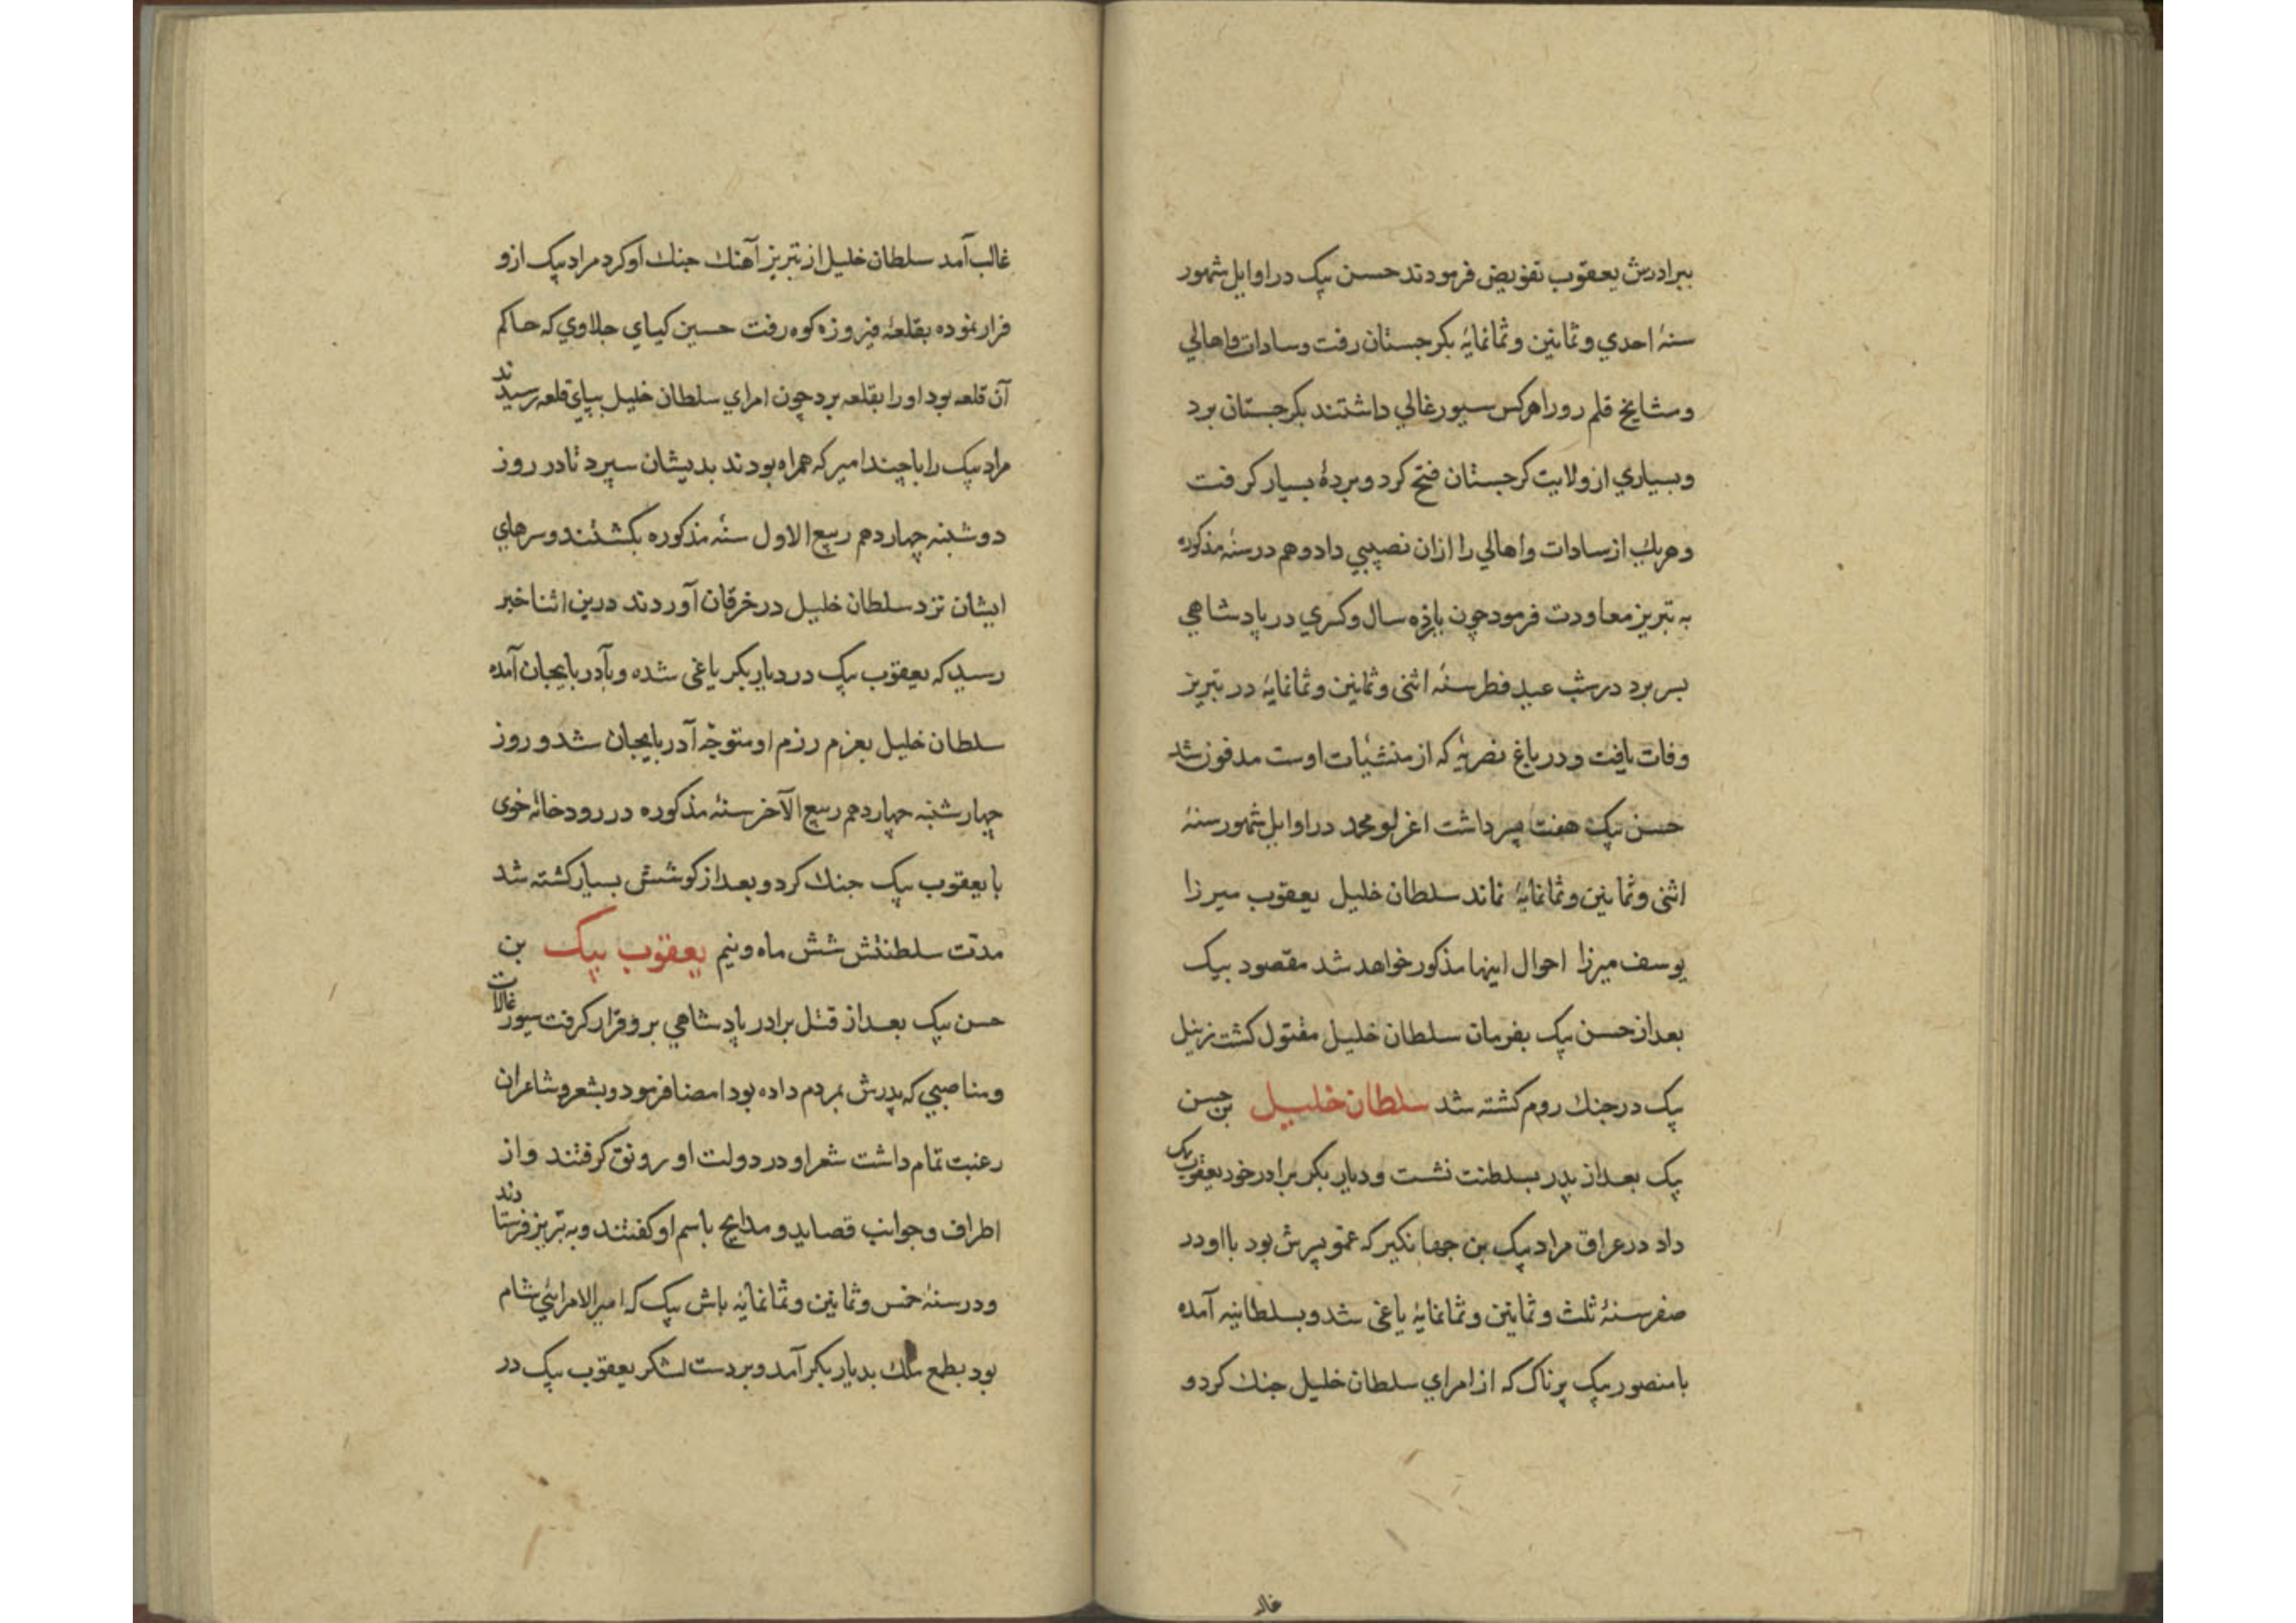 ببرادرش یعقوب تفویض فرمودند حسن بیک در اوایل شهور
سنهٔ احدي و ثمانین و ثمانمایهٔ بکرجستان رفت و سادات و اهالي
و مشایخ قلم رو را هرکس سیورغالي داشتند بکرجستان برد
و بسیاري از ولایت کرجستان فتح کرد و بردهٔ بسیار کرفت
و هریك از سادات و اهالي را ازان نصیبي داد و هم در سنهٔ مذکوره
به تبریز معاودت فرمود چون یازده سال و کسري در پادشاهي
بسر برد در شب عید فطر سنهٔ اثنی و ثمانین و ثمانمایهٔ در تبریز
وفات یافت و در باغ نصریهٔ که از منشیات اوست مدفون شد
حسن بیک هفت پسر داشت اغرلو محمد در اوایل شهور سنهٔ
اثنی و ثمانین و ثمانمایهٔ نماند سلطان خلیل یعقوب میرزا
یوسف میرزا احوال اینها مذکور خواهد شد مقصود بیک
بعد از حسن بیک بفرمان سلطان خلیل مقتول کشت زینل
بیک در جنك روم کشته شد سلطان خلیل بن حسن
بیک بعد از پدر بسلطنت نشست و دیار بکر برادر خود یعقوب بیک
داد در عراق مراد بیک بن جهانکیر که عمو پسرش بود با او در
صفر سنهٔ ثلث و ثمانین و ثمانمایهٔ یاغی شد و بسلطانیه آمده
با منصور بیک پرناک که از امراي سلطان خلیل جنك کرد و
غالـ
غالب آمد سلطان خلیل از تبریز آهنك جنك او کرد مراد بیک ازو
فرار نموده بقلعهٔ فیروزه کوه رفت حسین کیاي جلاوي که حاکم
آن قلعه بود او را بقلعه برد چون امراي سلطان خلیل بپاي قلعه رسیدند
مراد بیک را با چند امیر که همراه بودند بدیشان سپرد تا در روز
دوشنبه چهاردهم ربیع الاول سنهٔ مذکوره بکشتند و سرهاي
ایشان نزد سلطان خلیل در خرقان آوردند درین اثنا خبر
رسید که یعقوب بیک در دیار بکر یاغی شده و بآدربایجان آمده
سلطان خلیل بعزم رزم او متوجّه آدربایجان شد و روز
چهارشنبه چهاردهم ربیع الآخر سنهٔ مذکوره در رودخانهٔ خوی
با یعقوب بیک جنك کرد و بعد از کوشش بسیار کشته شد
مدّت سلطنتش شش ماه و نیم یعقوب بیک بن
حسن بیک بعد از قتل برادر پادشاهي برو قرار کرفت سیورغالات
و مناصبي که پدرش بمردم داده بود امضا فرمود و بشعر و شاعران
رغبت تمام داشت شعرا و در دولت او رونق کرفتند و از
اطراف و جوانب قصاید و مدایح باسم او کفتند و به تبریز فرستادند
و در سنهٔ خمس و ثمانین و ثمانمایهٔ باش بیک که امیر الامرائي شام
بود بطمع ملك بدیار بکر آمد و بر دست لشکر یعقوب بیک در